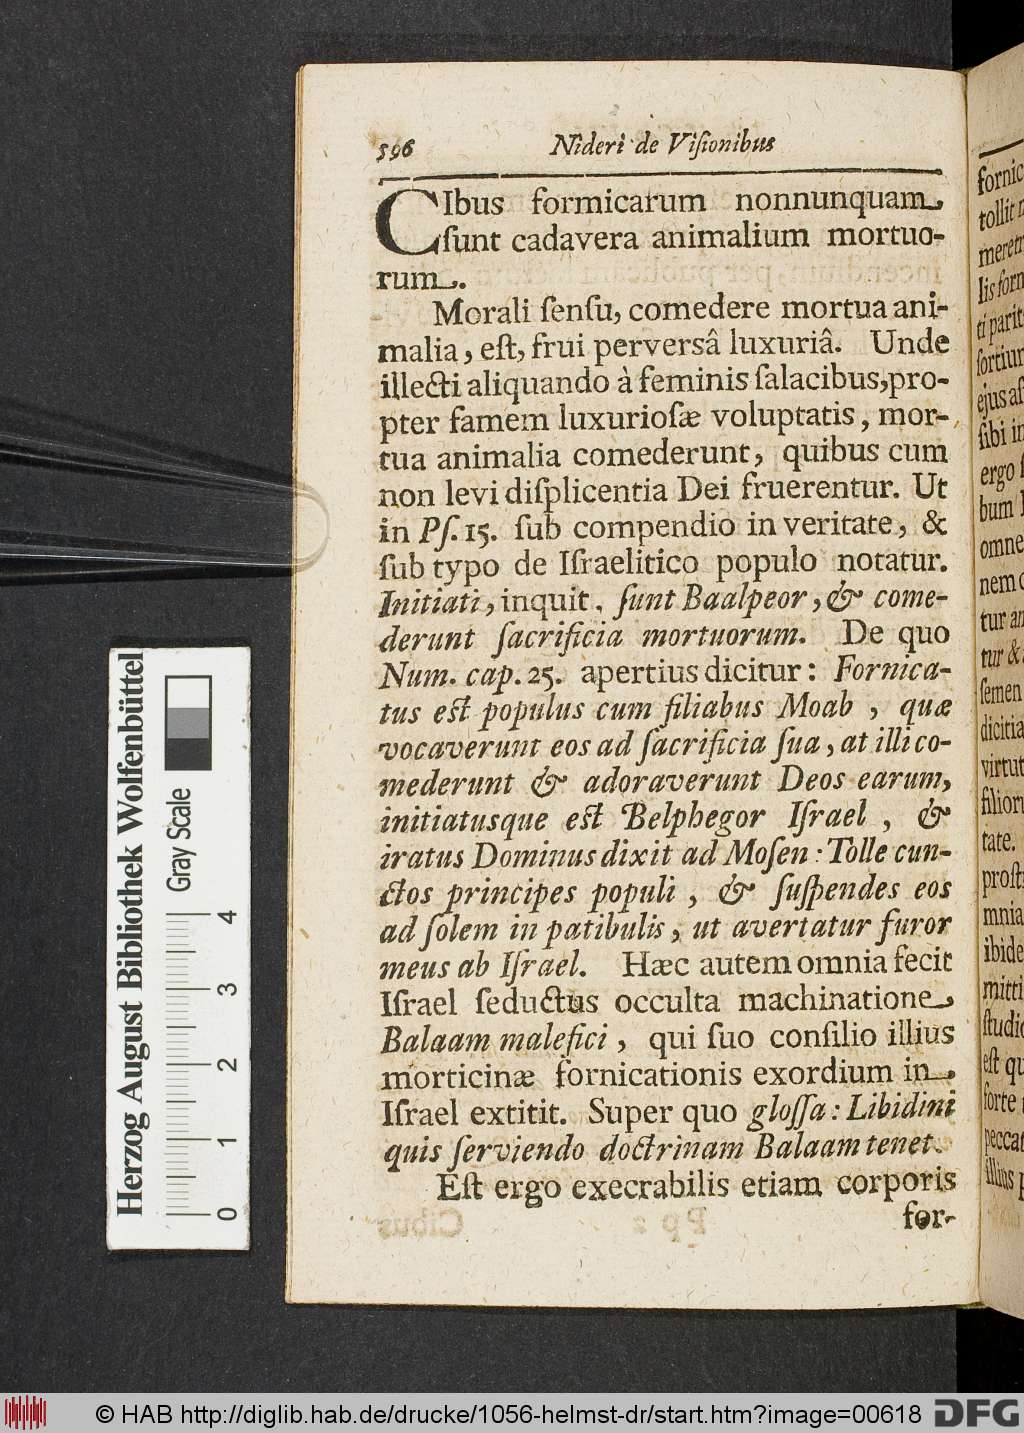 596 Nideri de Viſionibus
CIbus formicarum nonnunquam
ſunt cadavera animalium mortuo-
rum.
Morali ſenſu, comedere mortua ani-
malia, eſt, frui perversâ luxuriâ. Unde
illecti aliquando à feminis ſalacibus, pro-
pter famem luxurioſæ voluptatis, mor-
tua animalia comederunt, quibus cum
non levi diſplicentia Dei fruerentur. Ut
in Pſ. 15. ſub compendio in veritate, &
ſub typo de Iſraelitico populo notatur.
Initiati, inquit, ſunt Baalpeor, & come-
derunt ſacrificia mortuorum. De quo
Num. cap. 25. apertius dicitur: Fornica-
tus eſt populus cum filiabus Moab, quæ
vocaverunt eos ad ſacrificia ſua, at illi co-
mederunt & adoraverunt Deos earum,
initiatusque eſt Belphegor Iſrael, &
iratus Dominus dixit ad Moſen: Tolle cun-
ctos principes populi, & ſuſpendes eos
ad ſolem in patibulis, ut avertatur furor
meus ab Iſrael. Hæc autem omnia fecit
Iſrael ſeductus occulta machinatione
Balaam malefici, qui ſuo conſilio illius
morticinæ fornicationis exordium in
Iſrael extitit. Super quo gloſſa: Libidini
quis ſerviendo doctrinam Balaam tenet.
Eſt ergo execrabilis etiam corporis
for-
fornic
tollit
meretr
lis form
ti parit
ſortiun
ejus aſ
ſibi in
ergo
bum
omne
nem
tur an
tur &
ſemen
dicitia
virtut
filior
tate.
proſt
mnia
ibide
mitti
ſtudio
eſt qu
forte
peccat
illius
Herzog August Bibliothek Wolfenbüttel
Gray Scale
0 1 2 3 4
© HAB http://diglib.hab.de/drucke/1056-helmst-dr/start.htm?image=00618 DFG